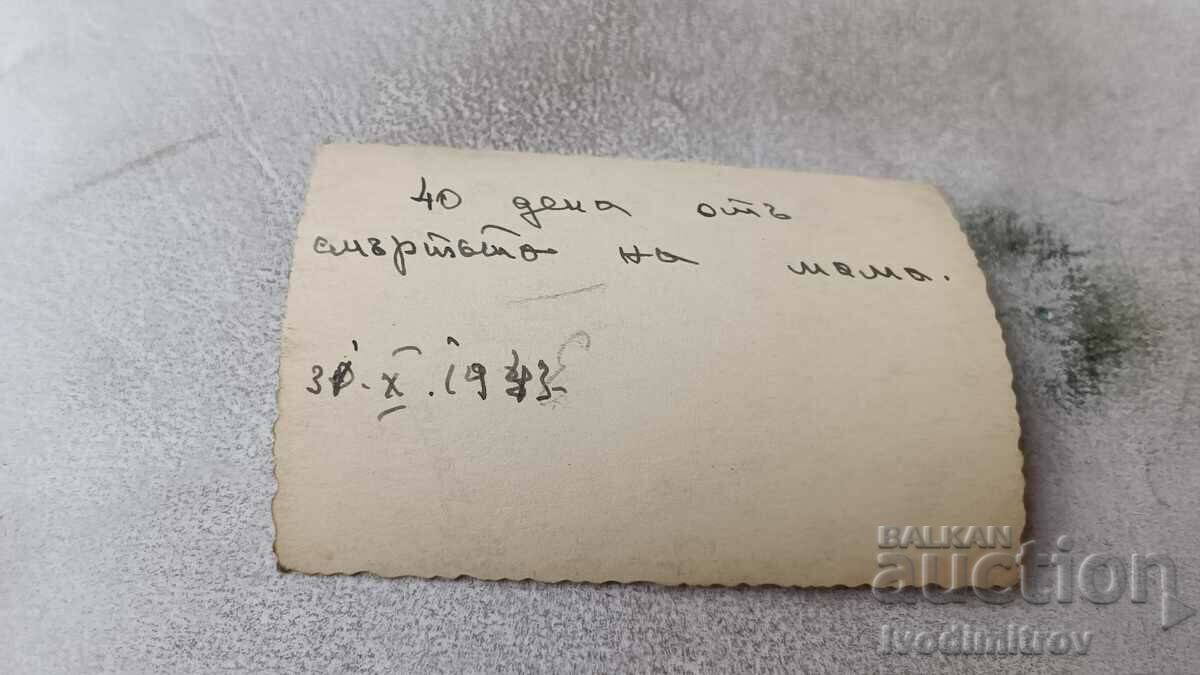 40 дена отъ
смъртьта на мама.
31. X. 1943
BALKAN
auction
Ivodimitrov